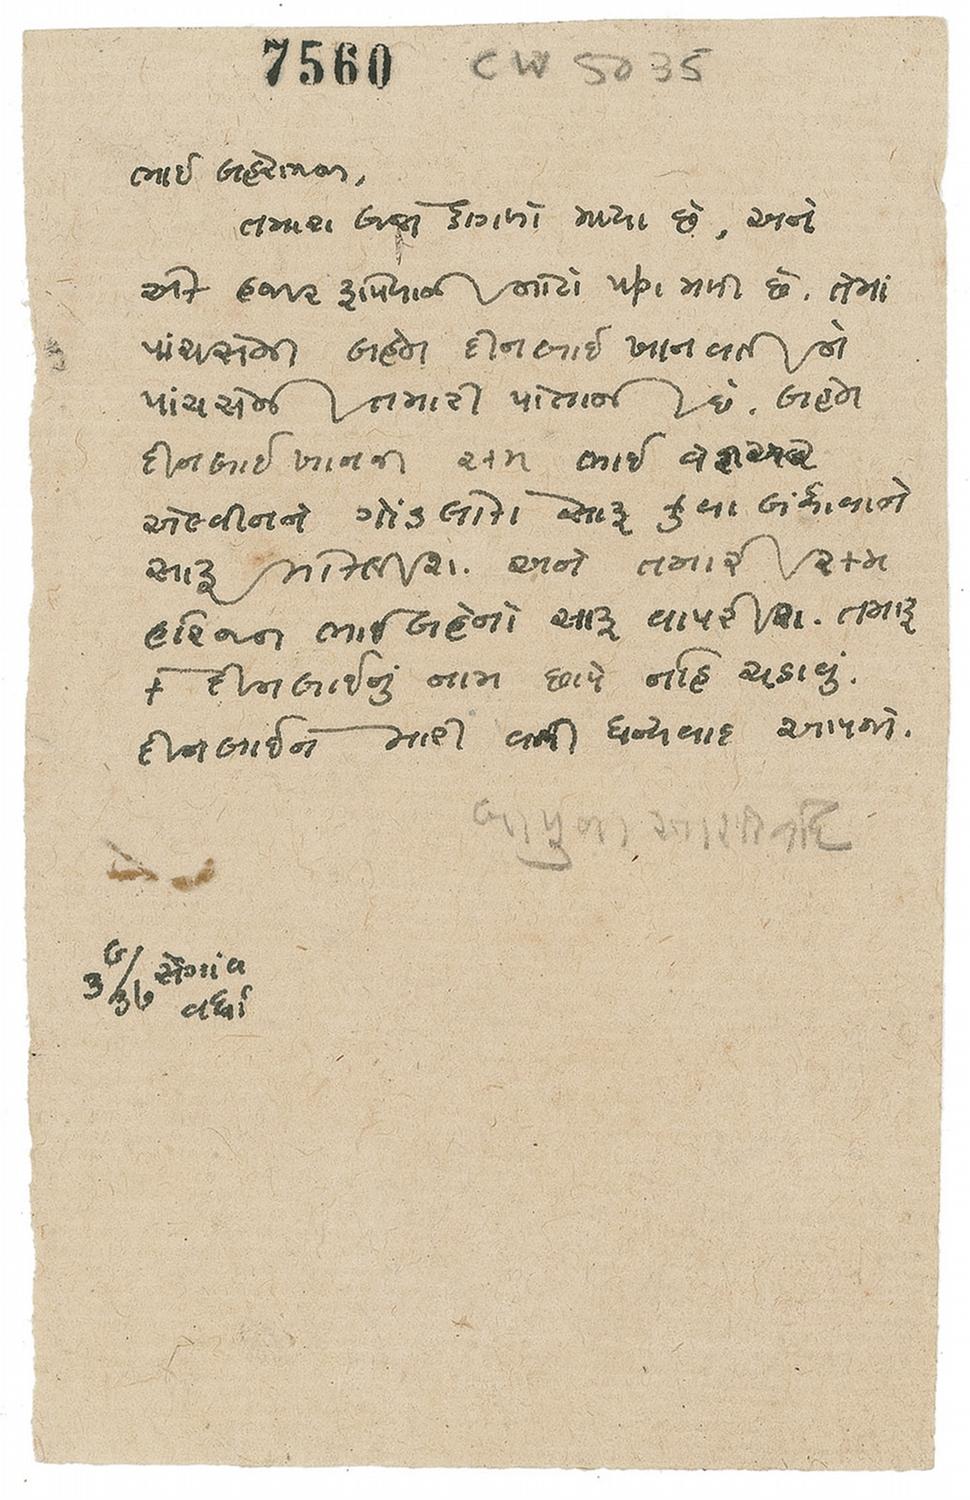 7560 CW 5035
ભાઈ બહેરામજી,
તમારા બન્ને કાગળો મળ્યા છે, અને
એક હજાર રૂપિયાની નોટો પણ મળી છે. તેમાં
પાંચસેંની બહેન દીનબાઈ ખાન વતીની ને
પાંચસેંની તમારી પોતાની છે. બહેન
દીનબાઈ ખાનની રકમ ભાઈ વેરીઅર
એલ્વીનને ગોંડ લોકો સારૂ કુવા બંધાવાને
સારૂ મોકલીશ. અને તમારી રકમ
હરિજન ભાઈ બહેનો સારૂ વાપરીશ. તમારૂ
કે દીનબાઈનું નામ છાપે નહિ ચડાવું.
દીનબાઈને મારી વતી ધન્યવાદ આપજો.
બાપુના આશીર્વાદ
૩ ૬/૩૭ સેગાંવ
વર્ધા